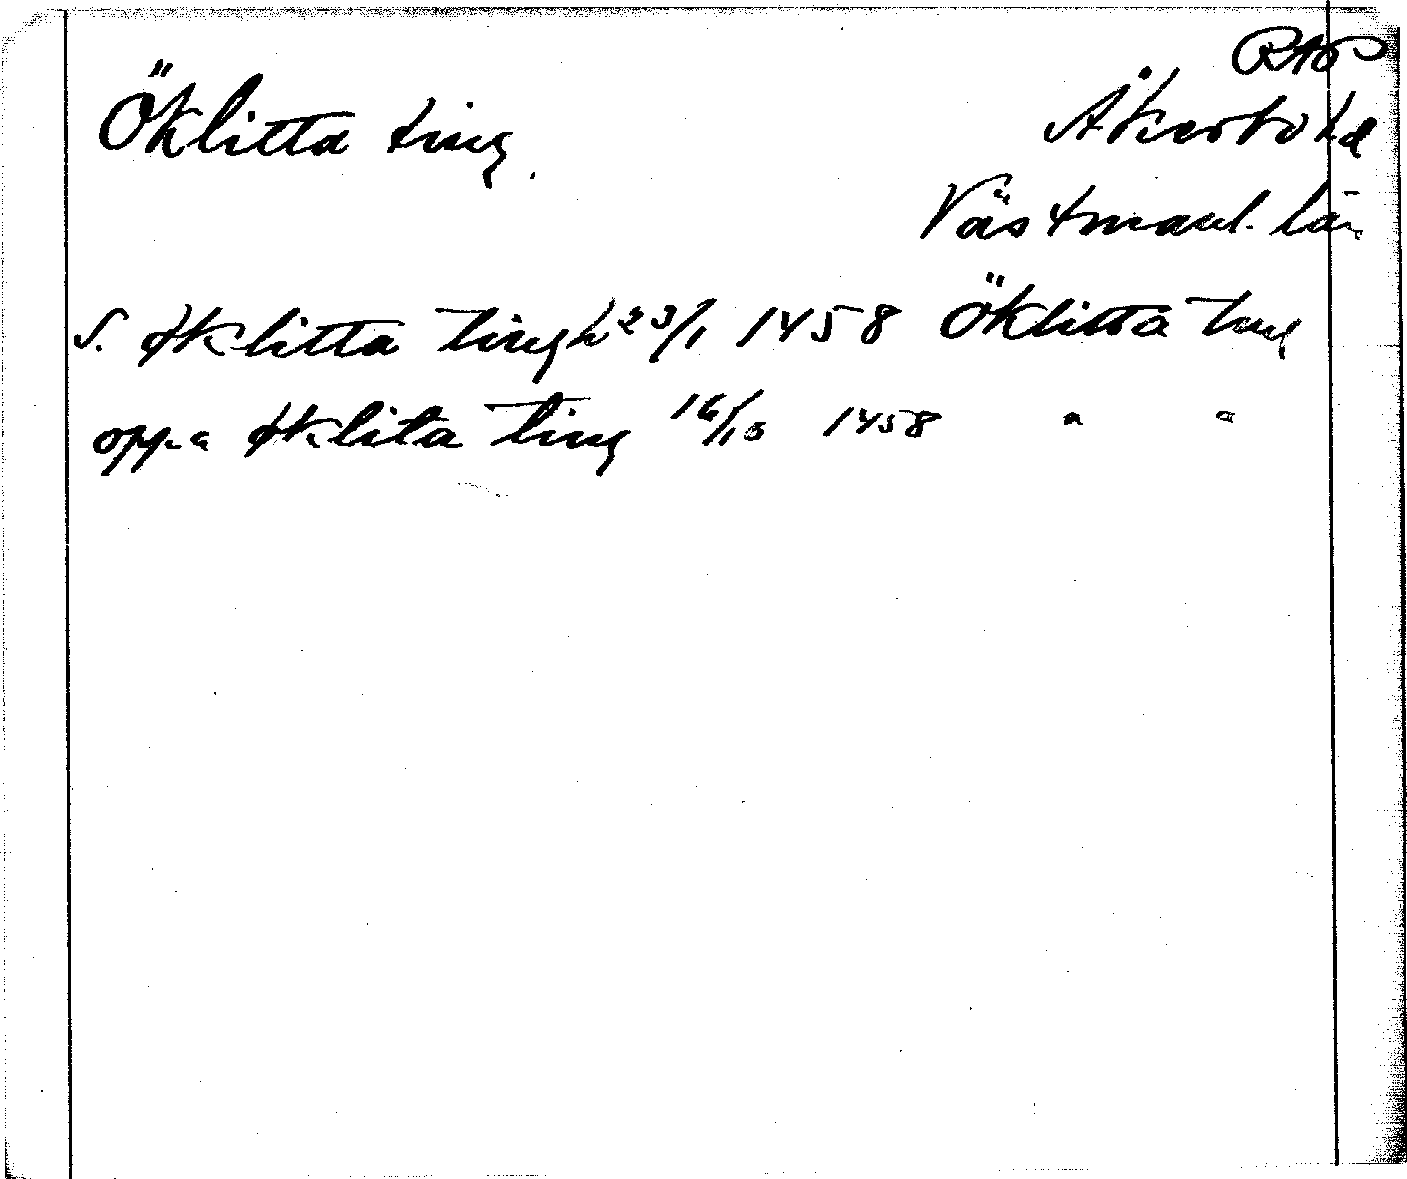 RAP
Öklitta ting.
Åkerbo hd
Västmanl. län
S. Øklitta tingh 23/1 1458 Öklitta ting
oppa Øklita ting 16/10 1458 " "